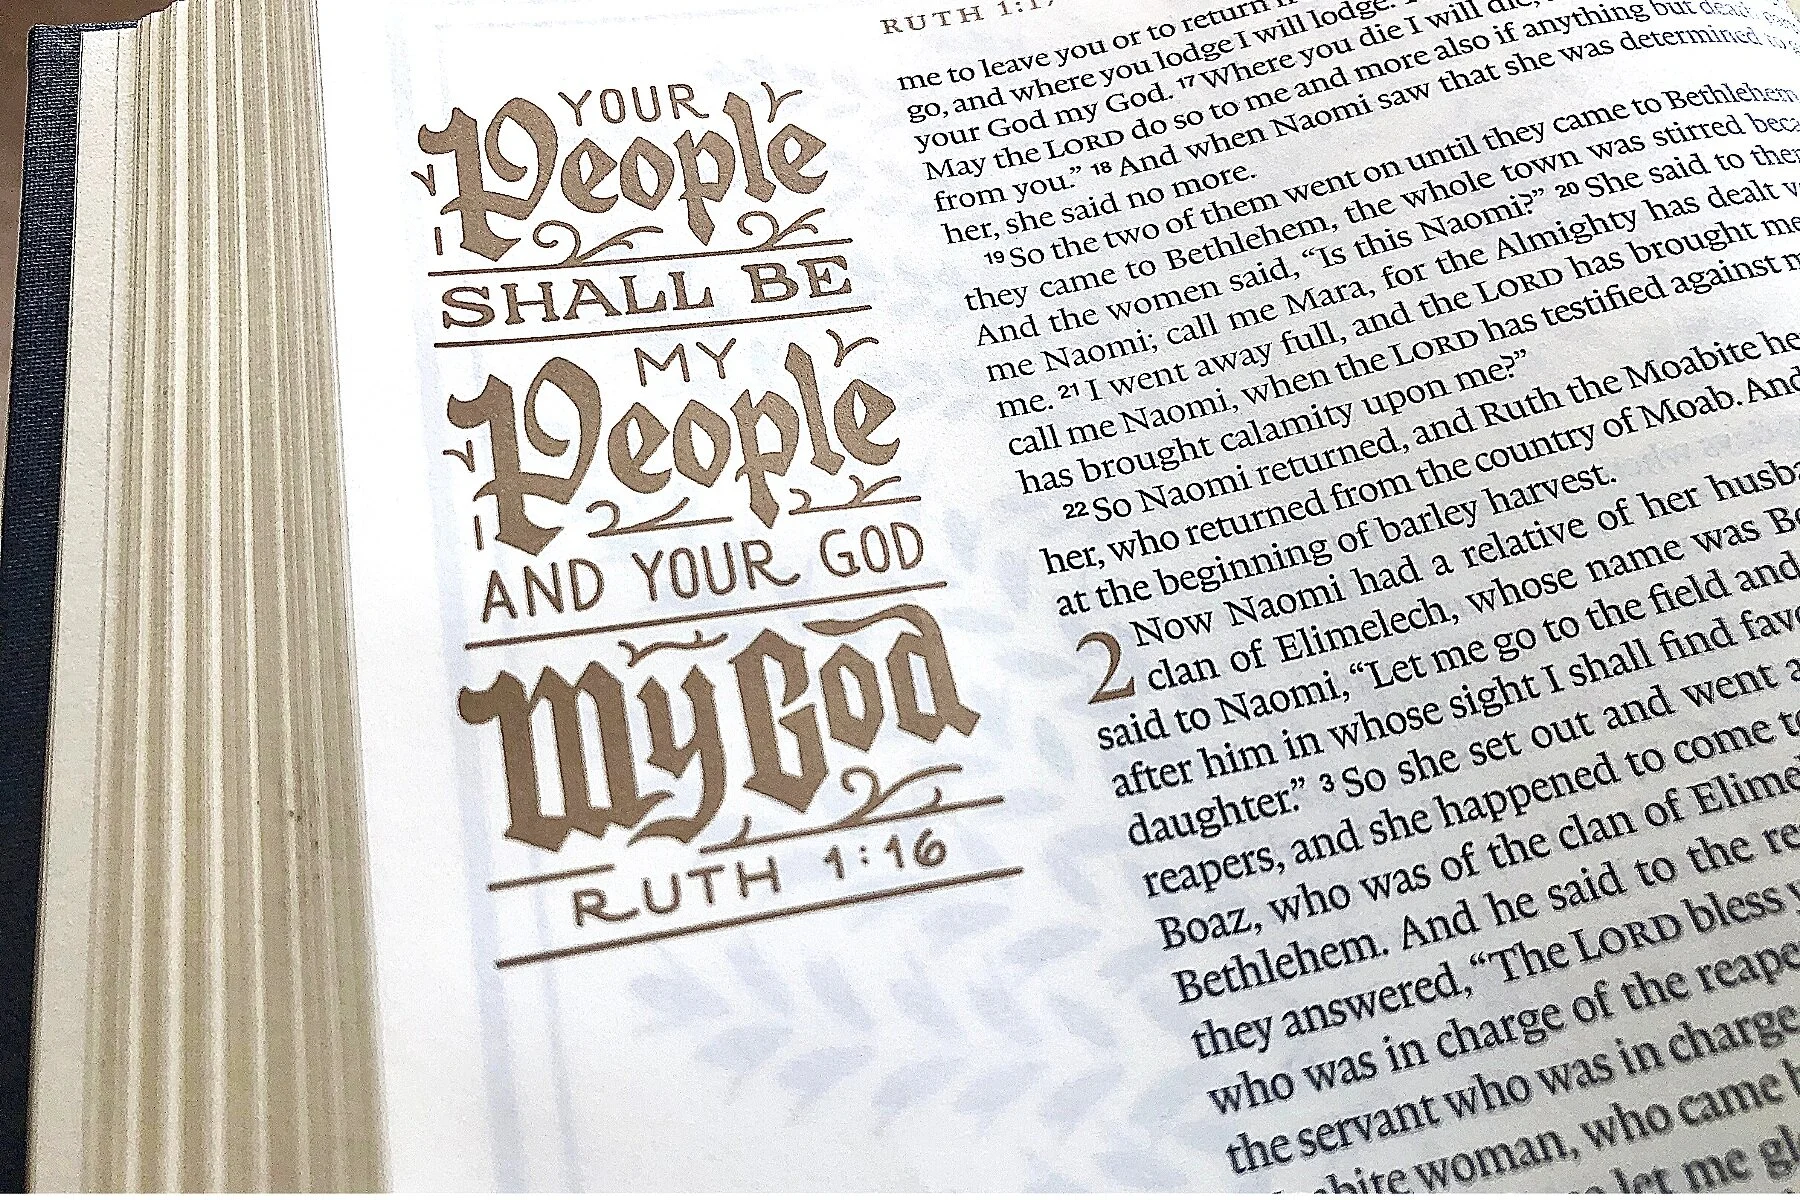 YOUR
People
SHALL BE
MY
People
AND YOUR GOD
My God
RUTH 1:16
RUTH 1:17
me to leave you or to return
go, and where you lodge I will lodge.
your God my God. 17 Where you die I will die,
May the LORD do so to me and more also if anything but death
from you.” 18 And when Naomi saw that she was determined to
her, she said no more.
19 So the two of them went on until they came to Bethlehem.
they came to Bethlehem, the whole town was stirred
And the women said, “Is this Naomi?” 20 She said to
me Naomi; call me Mara, for the Almighty has dealt
me. 21 I went away full, and the LORD has brought me
call me Naomi, when the LORD has testified against
has brought calamity upon me?”
22 So Naomi returned, and Ruth the Moabite
her, who returned from the country of Moab. And
at the beginning of barley harvest.
2 Now Naomi had a relative of her
clan of Elimelech, whose name was
said to Naomi, “Let me go to the field and
after him in whose sight I shall find
daughter.” 3 So she set out and went
reapers, and she happened to come
Boaz, who was of the clan of
Bethlehem. And he said to the
they answered, “The LORD bless
who was in charge of the
the servant who was in charge
woman, who came
let me